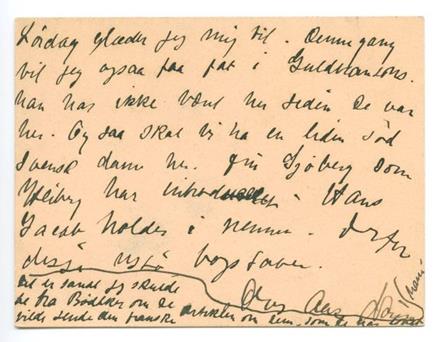 Lördag glæder jeg mig til. Denne gang
vil jeg ogsaa faa fat i Guldbransons.
han har ikke været her siden De var
her. Og saa skal vi ha en liden sød
svensk dame her. frk Sjöberg som
har introduceret. Hans
Jacob holder i nennen. derfor
disse bogstaver.
det er sandt jeg skulde
be fra Bödtker om De
vilde sende den franske artikelen om ham, som De har